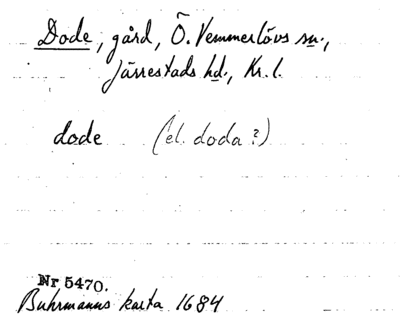 Dode, gård, Ö. Vemmerlövs sn.,
Järrestads hd., Kr. l.
dode (el. doda?)
Nr 5470.
Buhrmanns karta 1684